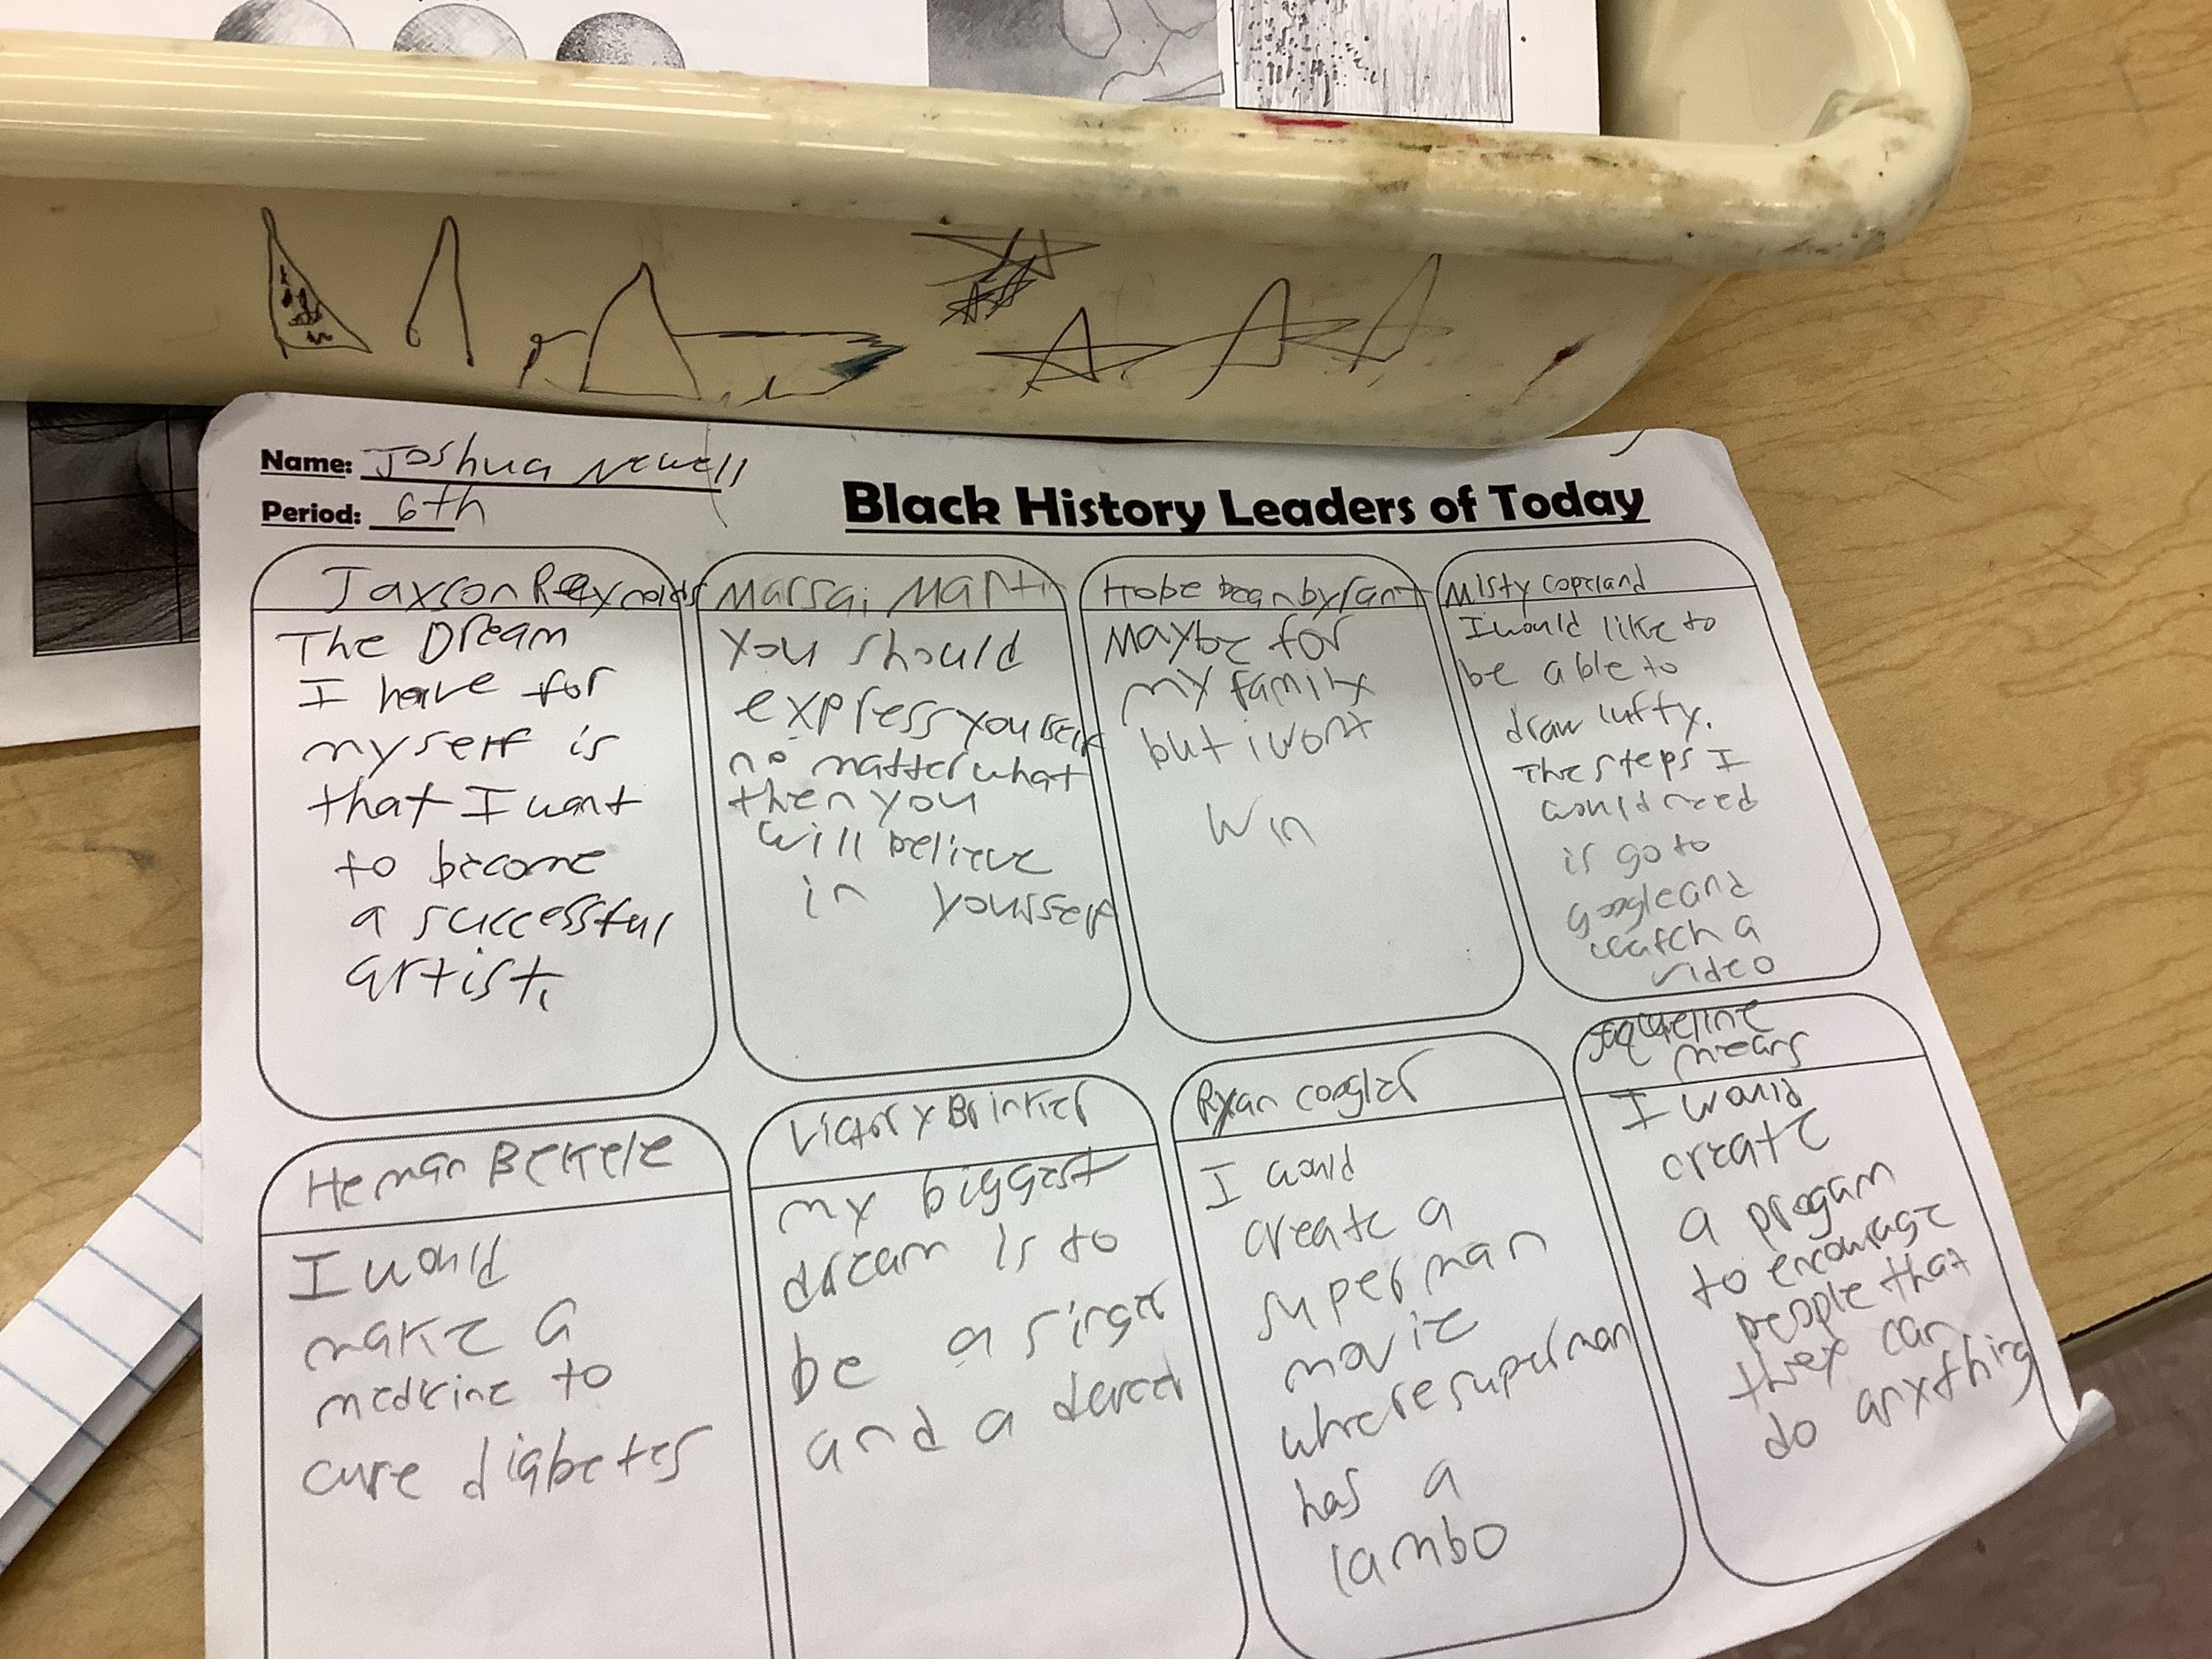 Name: Joshua Newell
Period: 6th
Black History Leaders of Today
Jaxson Reynolds
The Dream
I have for
myself is
that I want
to become
a successful
artist,
Marsai Martin
You should
express yourself
no matter what
then you
will believe
in yourself
Kobe bean bryant
Maybe for
my family
but i wont
win
Misty Copeland
I would like to
be able to
draw luffy.
The steps I
would need
is go to
google and
watch a
video
Heman Bekele
I would
make a
medicine to
cure diabetes
Victory Brinker
my biggest
dream is to
be a singer
and a
Ryan coogler
I would
create a
superman
movie
where superman
has a
lambo
Jaqueline
means
I would
create
a progam
to encourage
people that
they can
do anything